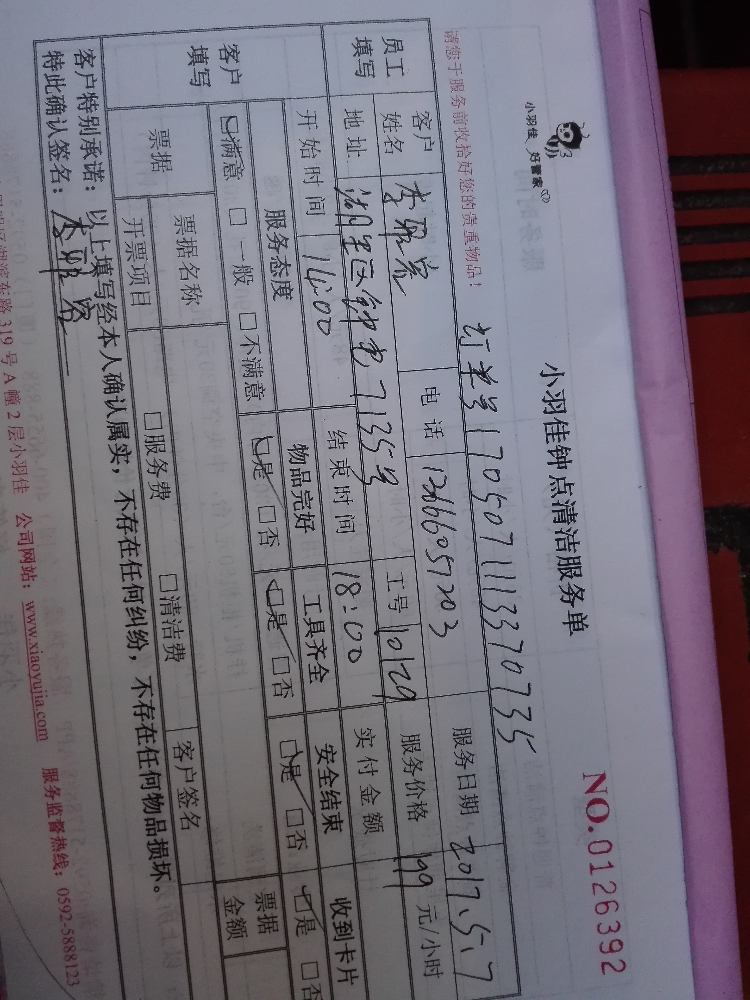 小羽佳 好管家
小羽佳钟点清洁服务单
NO.0126392
请您于服务前收拾好您的贵重物品！
订单号170507111133370735
员工填写
客户姓名
电话
服务日期 2017.5.7
地址 湖里区钟宅7135号
工号 10129
服务价格 199 元/小时
开始时间 14:00
结束时间 18:00
实付金额
客户填写
服务态度
物品完好
工具齐全
安全结束
收到卡片
☑满意 □一般 □不满意
☑是 □否
☑是 □否
☑是 □否
☑是 □否
票据
票据名称
客户签名
票据金额
开票项目
□服务费
□清洁费
客户特别承诺：以上填写经本人确认属实，不存在任何纠纷，不存在任何物品损坏。
特此确认签名：
路319号A幢2层小羽佳 公司网站：www.xiaoyujia.com 服务监督热线：0592-5888123